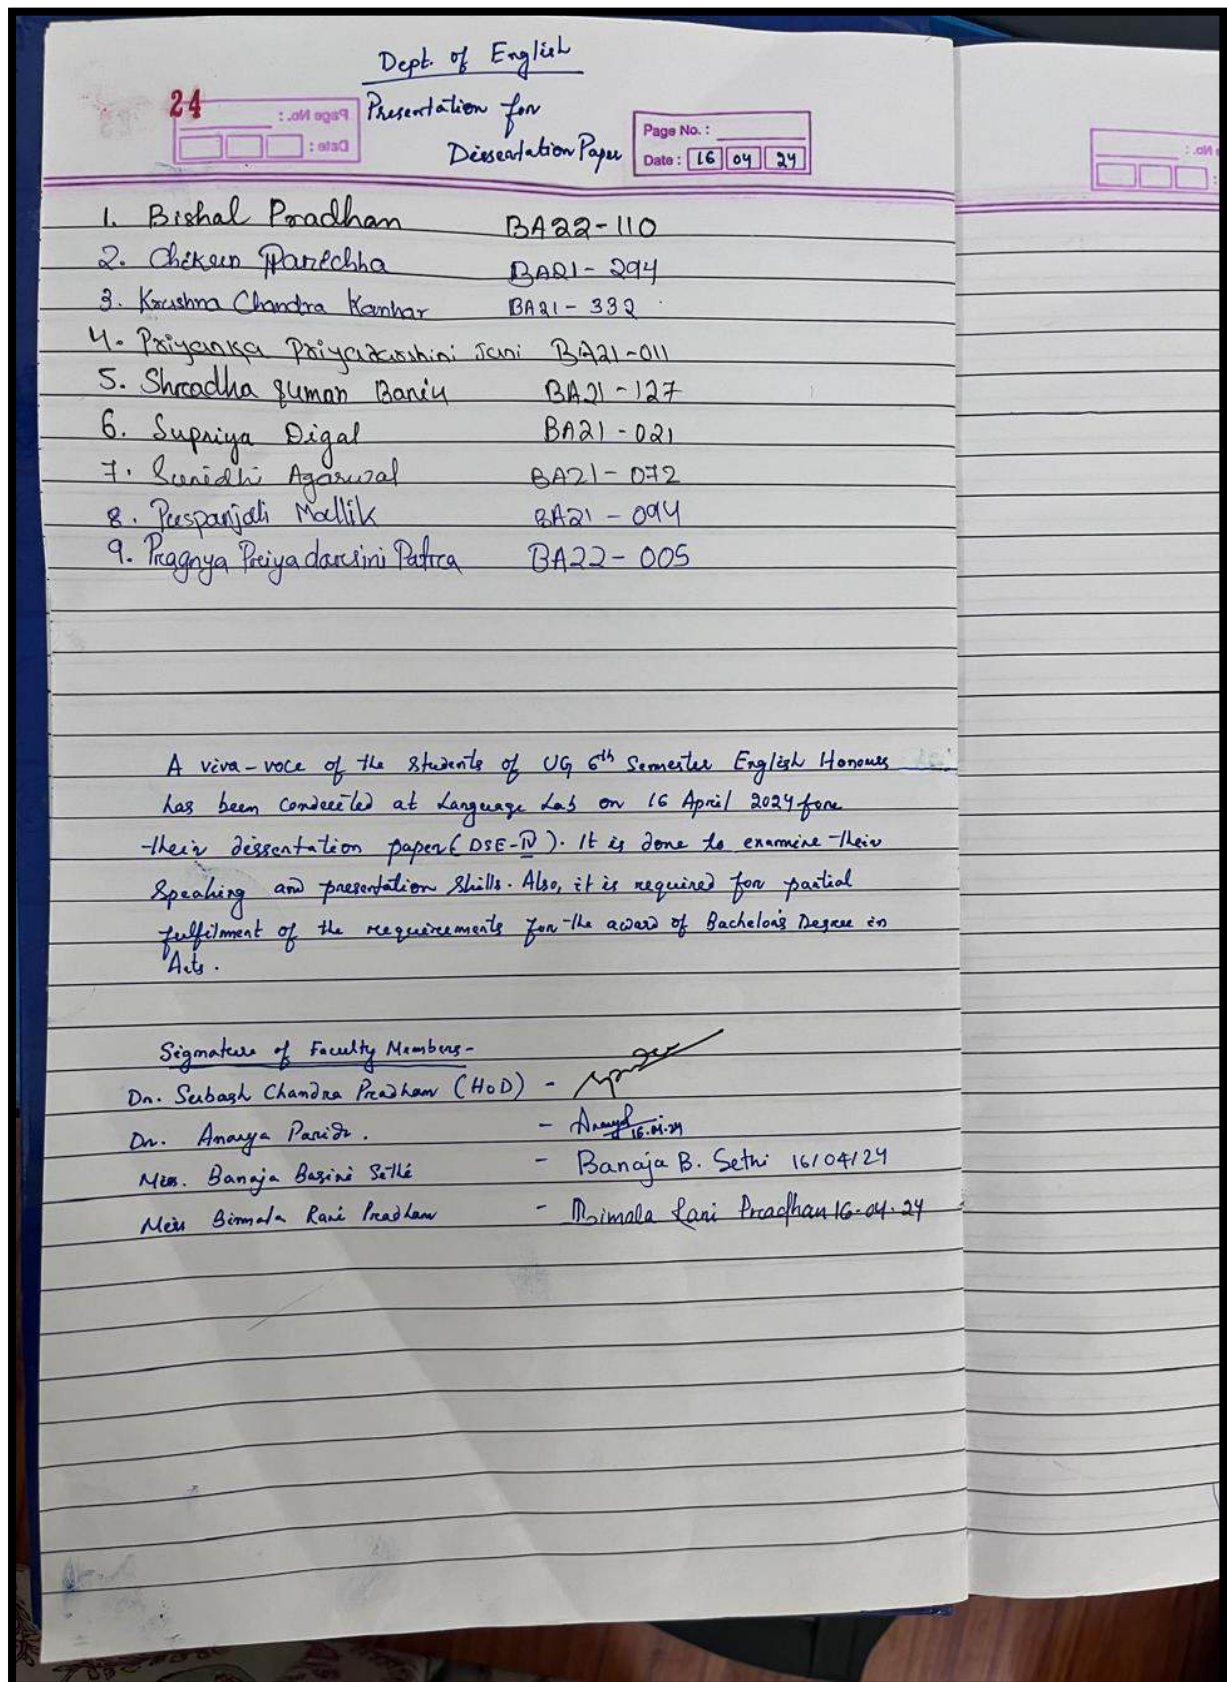 Dept. of English
24
Presentation for
Dissertation Paper
Page No. :
Date : 16 04 24
1. Bishal Pradhan BA22-110
2. Chikun Parichha BA21-294
3. Krushna Chandra Kanhar BA21-332
4. Priyanka Priyadarshini Jani BA21-011
5. Shradha Suman Barik BA21-127
6. Supriya Digal BA21-021
7. Sunidhi Agarwal BA21-072
8. Puspanjali Mallik BA21-094
9. Pragnya Priyadarsini Patra BA22-005
A viva-voce of the students of UG 6th Semester English Honours
has been conducted at Language Lab on 16 April 2024 for
their dissertation paper (DSE-IV). It is done to examine their
Speaking and presentation Skills. Also, it is required for partial
fulfilment of the requirements for the award of Bachelor's Degree in
Arts.
Signature of Faculty Members-
Dr. Subash Chandra Pradhan (HoD) -
Dr. Ananya Parida. - 16.04.24
Miss. Banaja Basini Sethi - Banaja B. Sethi 16/04/24
Miss Bimala Rani Pradhan - Bimala Rani Pradhan 16-04-24